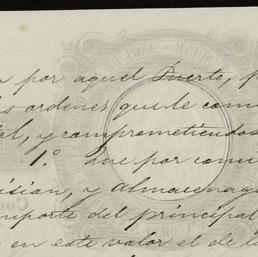 por aquel Puerto, p
s ordenes que le comu
al, y comprometiendos
1.° Que por comi
ision, y almacenage
mporte del principal
en este valor el de l